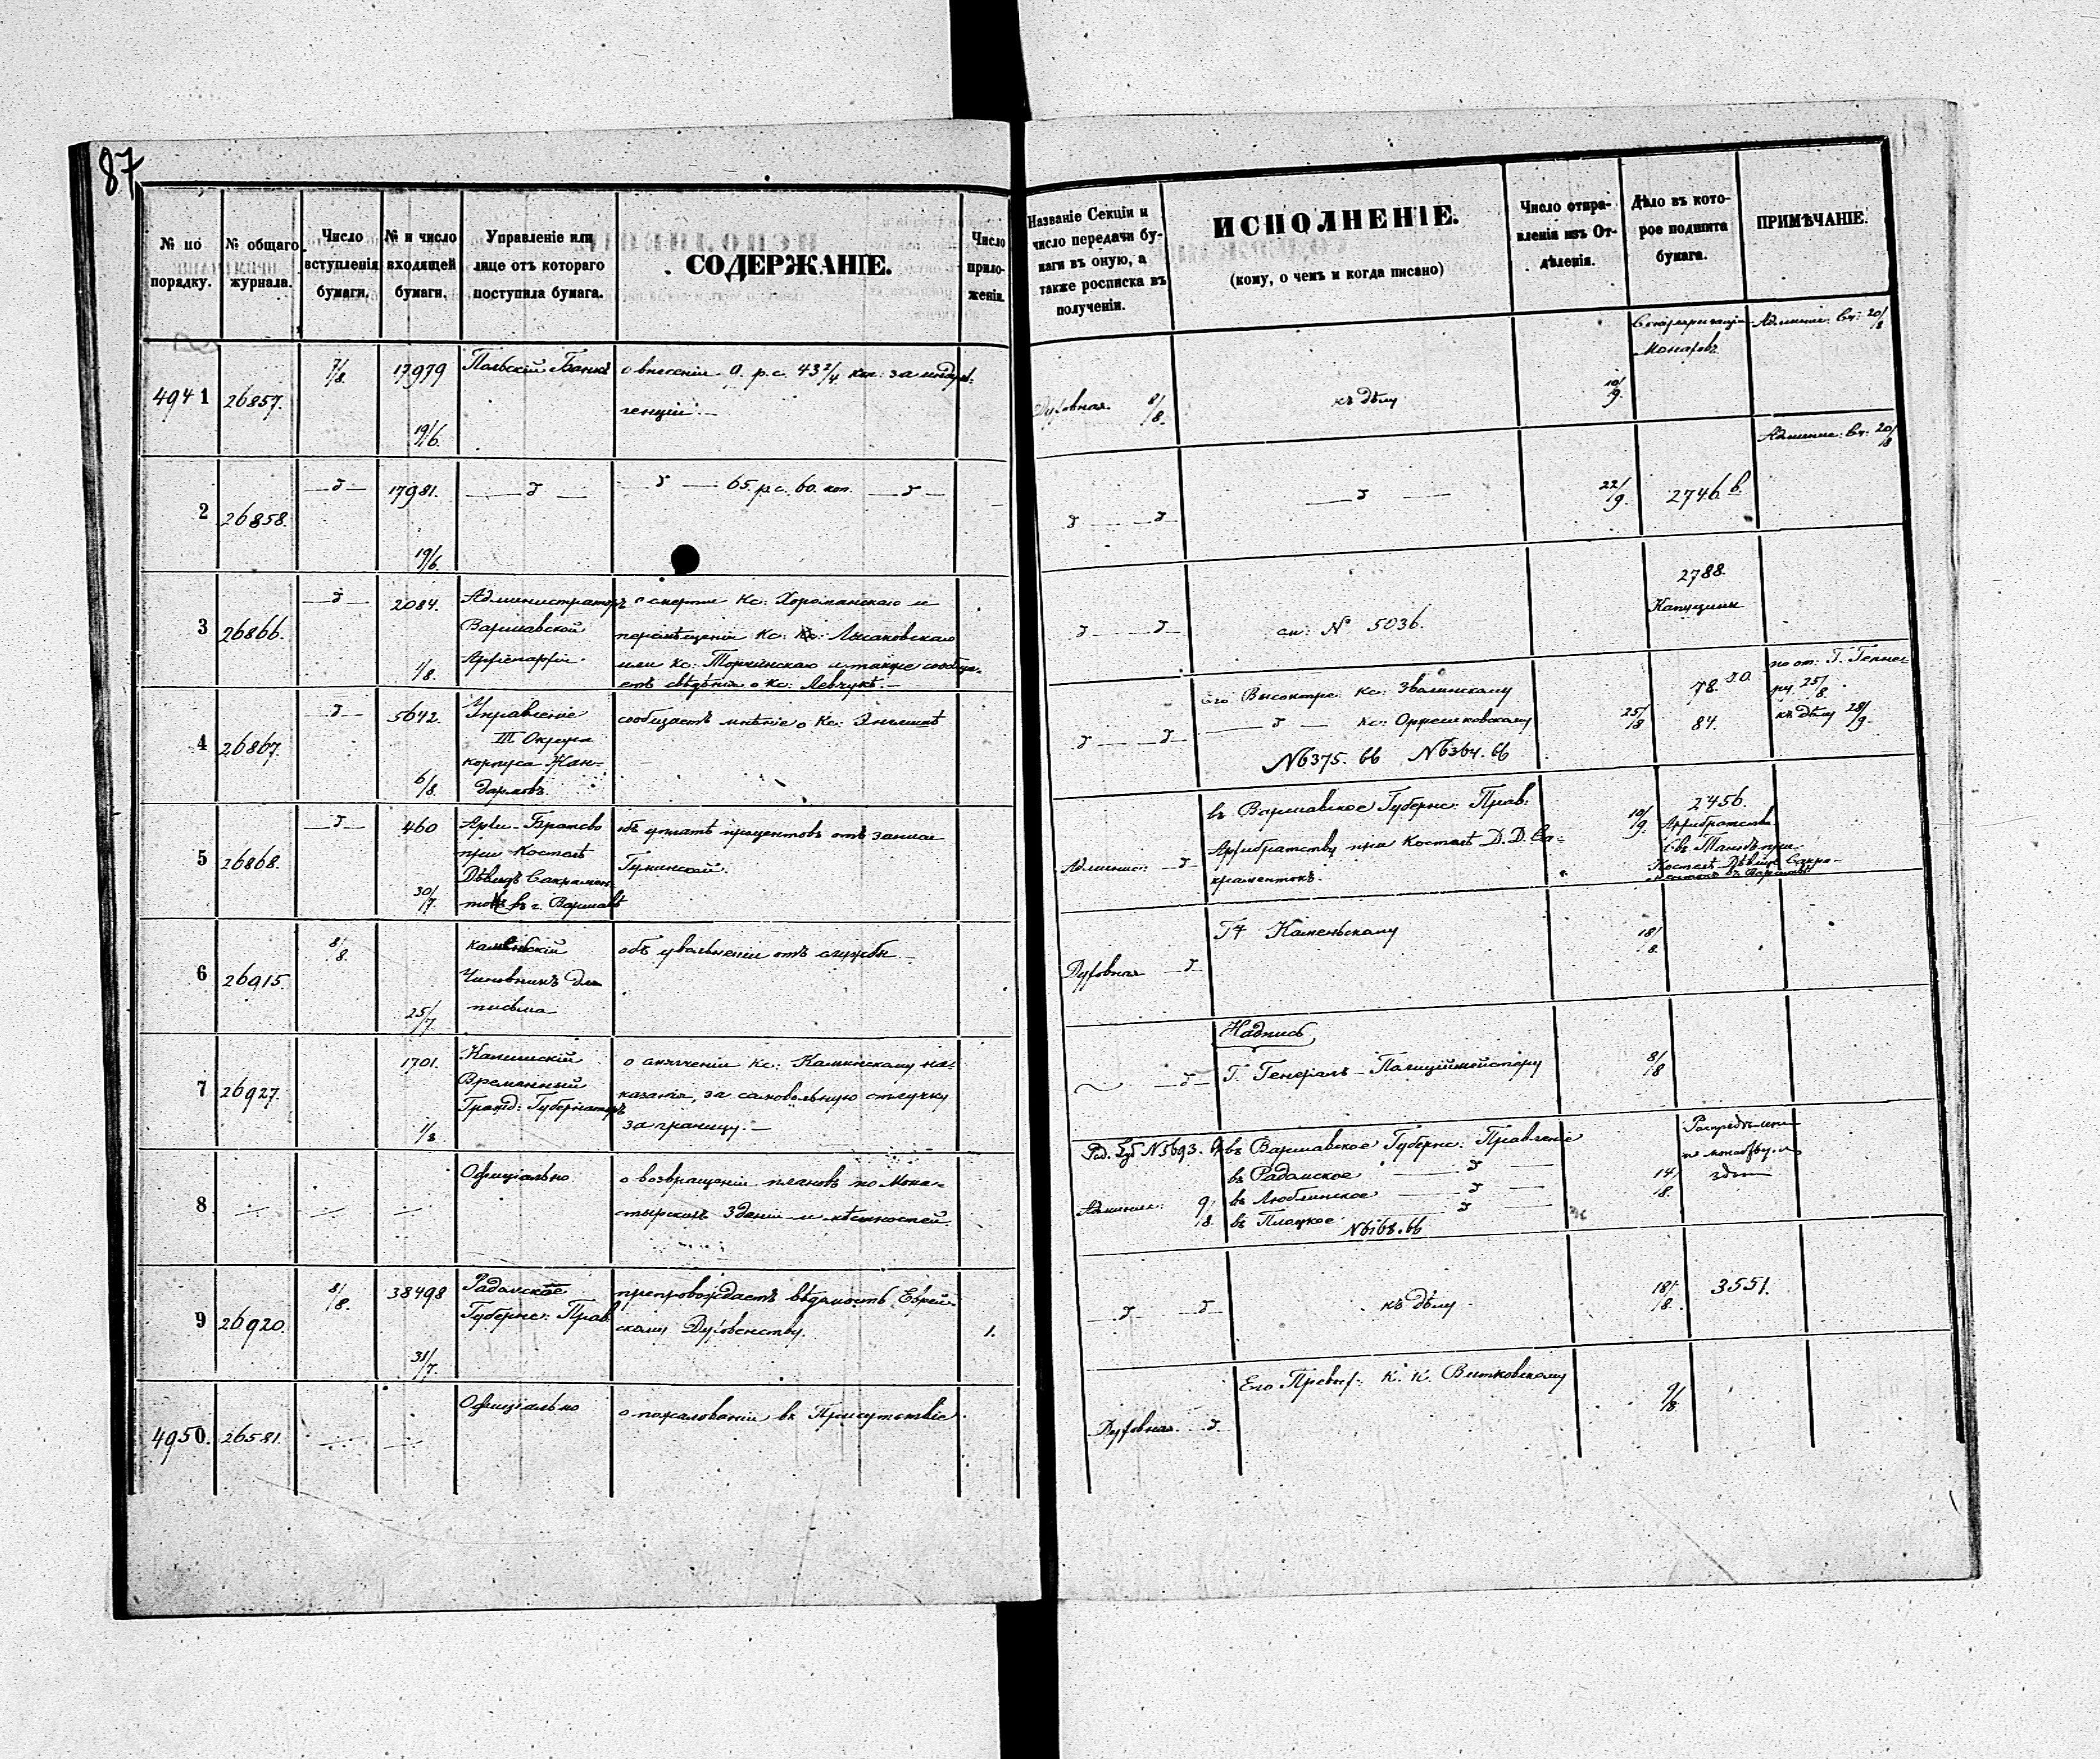 87
№ по порядку.
№ общаго журнала.
Число вступленія бумаги.
№ и число входящей бумаги.
Управленіе или лице отъ котораго поступила бумага.
СОДЕРЖАНІЕ.
Число приложенія.
4941
26857.
7/8.
17979
19/6.
Польскій Банкъ
о внесеніи 9. р. с. 43 2/4 коп: за индуль-
генціи.—
2
26858.
—д—
17981.
19/6.
—д—
—д— 65. р. с. 60. коп. —д—
3
26866.
—д—
2084.
1/8.
Администраторъ
Варшавской
Архіепархіи.
о смерти Кс: Хороманскаго и
перемѣщеніи Кс: Кс: Лысаковскаго
или Кс: Торчинскаго и также сообща-
етъ свѣдѣнія о Кс: Левчукѣ.—
4
26867.
—д—
5642.
6/8.
Управленіе
III Округа
корпуса Жан-
дармовъ.
сообщаетъ мнѣніе о Кс:
5
26868.
—д—
460
30/7.
Архи-Братсво
при Костелѣ
Дѣвицъ Сакрамен-
токъ въ г. Варшавѣ
объ уплатѣ процентовъ отъ записи
6
26915.
8/8.
25/7.
Каменьскій
Чиновникъ для
письма
объ увольненіи отъ службы.—
7
26927.
1701.
1/8.
Калишскій
Временный
Гражд: Губернаторъ
о смягченіи Кс: Калинскому на-
казанія, за самовольную отлучку
за границу.—
8
Офиціально
о возвращеніи плановъ по Мона-
стырскихъ зданій и мѣстностей.
9
26920.
8/8.
38498
31/7.
Радомское
Губернс: Прав.
препровождаетъ вѣдомость Еврей-
скому Духовенству.
1.
4950.
26581.
Офиціально
о пожалованіи въ Присутствіе.
Названіе Секціи и число передачи бумаги въ оную, а также росписка въ полученіи.
ИСПОЛНЕНІЕ.
(кому, о чемъ и когда писано)
Число отправленія изъ Отдѣленія.
Дѣло въ которое подшита бумага.
ПРИМѢЧАНІЕ.
Духовная. 8/8.
къ дѣлу
10/9.
Монаховъ
Админис: Вч: 20/8
д —д—
—д—
22/9.
2746 б.
Админис: Вч: 20/8
д —д—
сн: № 5036.
2788.
Капуцины
д —д—
Его Высокопре: Кс: Зволинскому
—д— Кс: Оржешковскому
№6375. 66 №6364. 66
25/8
78.
84.
25/8.
къ дѣлу 28/9.
Админис: —д
въ Варшавское Губернс: Прав:
Архибратству при Костелѣ Д. Д. Са-
краментокъ.
10/9.
2456.
Архибратства
Костелѣ Дѣвицъ Сакра-
ментокъ въ Варшавѣ
Духовная —д
Гч Каменьскому
18/8.
—д—
Надпись
Г. Генералъ-Полицiймейстеру
8/8
Админис: 9/8.
въ Варшавское Губернс: Правленіе
въ Радомское —д—
въ Люблинское —д—
въ Плоцкое —д—
№6168.66
14/8.
—д— —д—
къ дѣлу
18/8.
3551.
Духовная. —д
Его Превосх: К. К. Витковскому
9/8